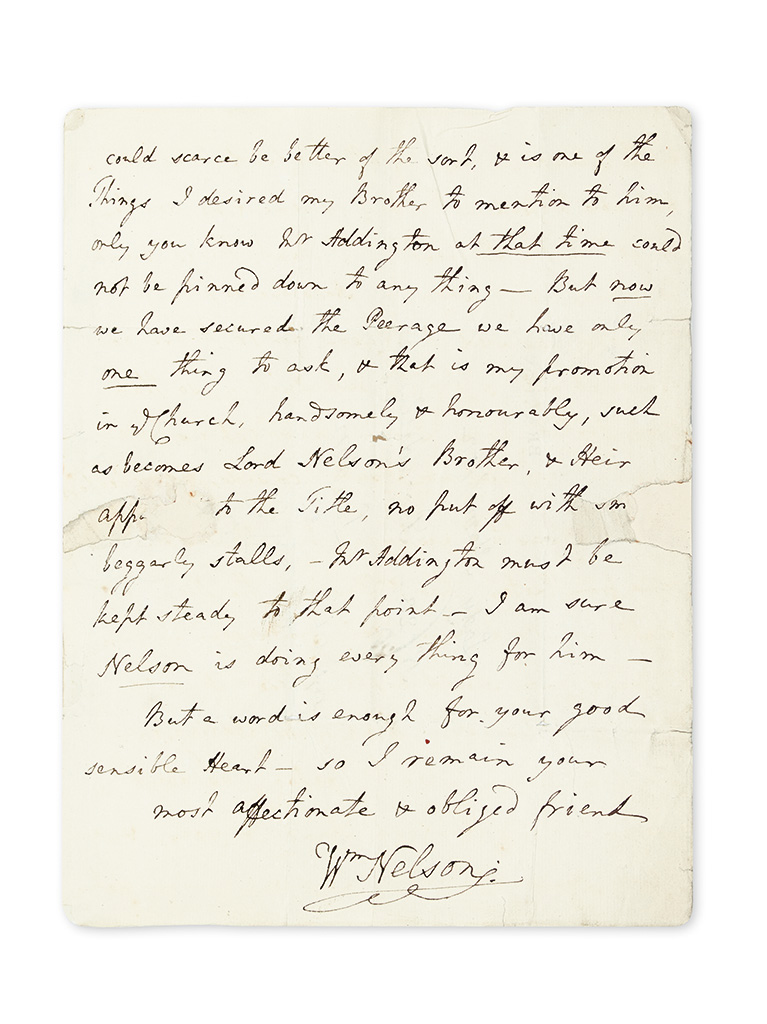 could scarce be better of the sort, & is one of the
Things I desired my Brother to mention to him,
only you know Mr Addington at that time could
not be pinned down to any thing — But now
we have secured the Peerage we have only
one thing to ask, & that is my promotion
in ye Church, handsomely & honourably, such
as becomes Lord Nelson's Brother, & Heir
app. to the Title, no put off with sm
beggarly stalls, — Mr Addington must be
kept steady to that point — I am sure
Nelson is doing every thing for him —
But a word is enough for your good
sensible Heart — so I remain your
most affectionate & obliged friend
Wm Nelson.